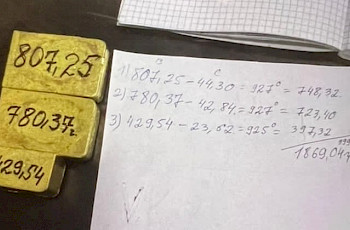 807,25
780,37г.
429,54
1) 807,25 – 44,30 = 927° = 748,32
2) 780,37 – 42,84 = 927° = 723,40
3) 429,54 – 23,62 = 925° = 397,32
1869,04